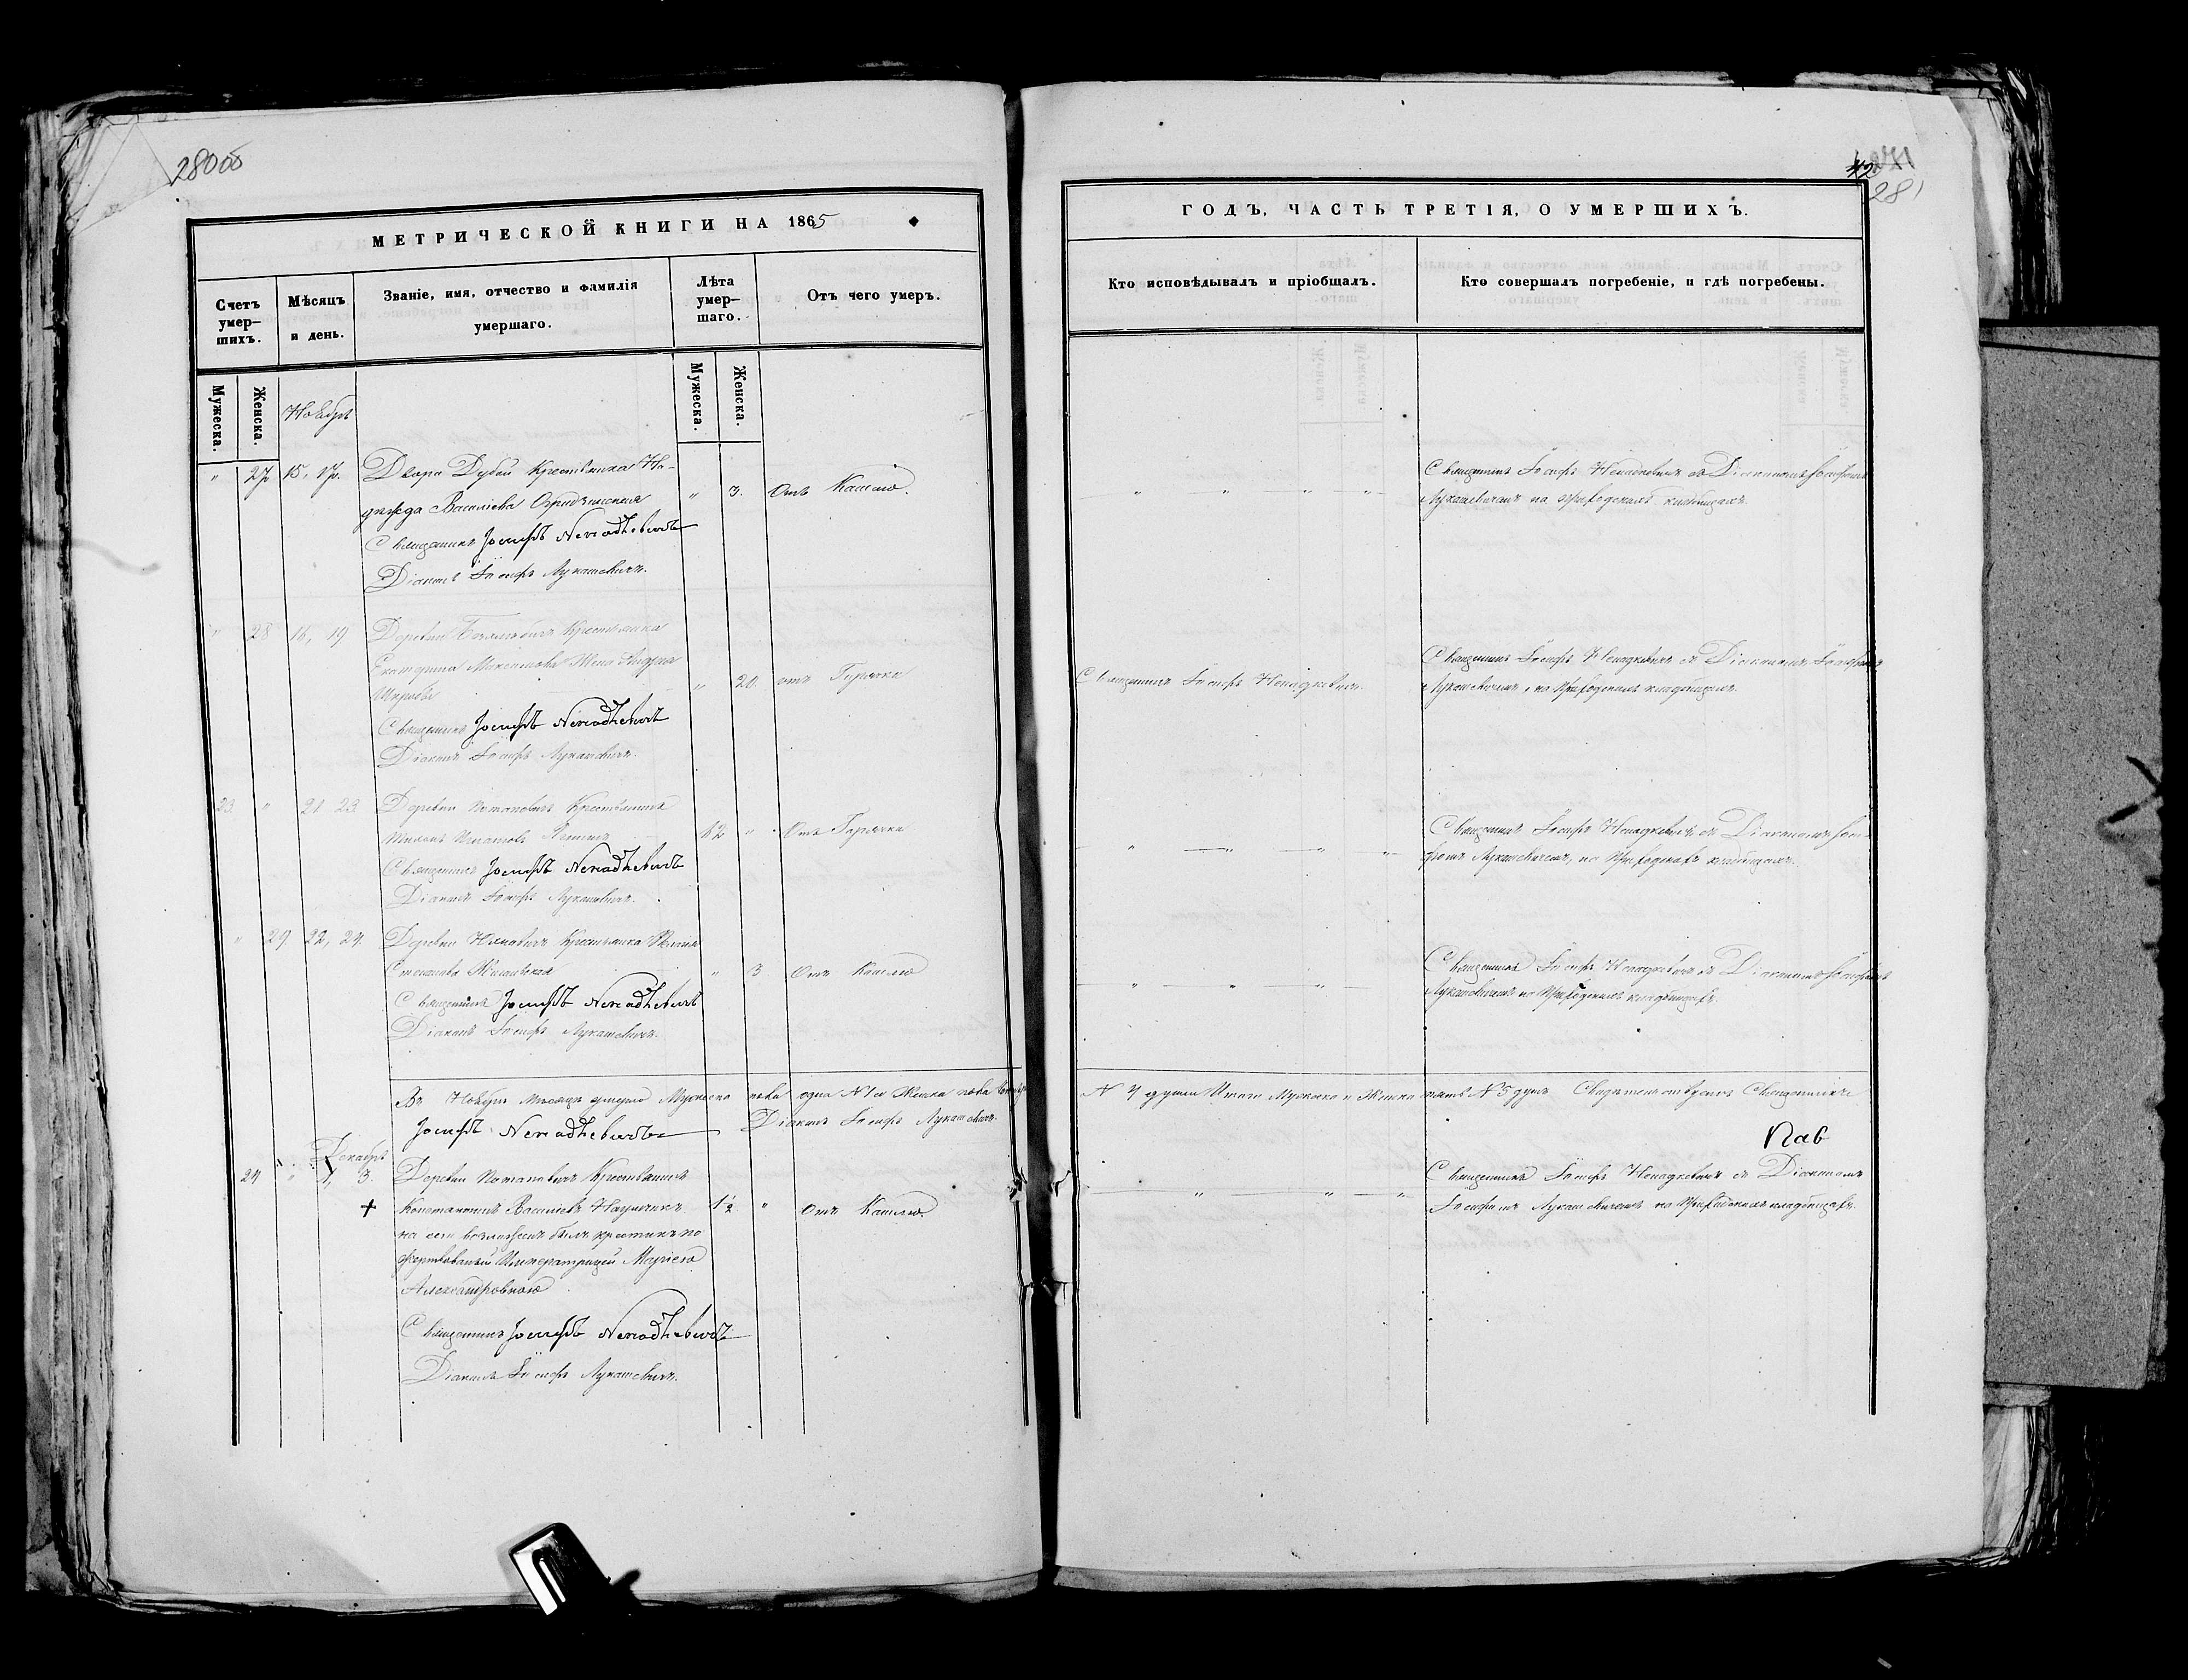 280об
МЕТРИЧЕСКОЙ КНИГИ НА 1865
Счетъ умер–шихъ.
Мѣсяцъ и день.
Званіе, имя, отчество и фамилія умершаго.
Лѣта умер–шаго.
Отъ чего умеръ.
Мужеска.
Женска.
Ноябрь
Мужеска.
Женска.
" 27 15, 17. Двора Дубои Крестьянка На-
дежда Василіева " 3. Отъ Кашлю.
Священникъ Іосифъ Ненадкевичъ
Діаконъ Іосифъ Лукашевичъ.
" 28 16, 19 Деревни Крестьянка
Екатерина Максимова Жена Андрея
" 20. отъ Горячки
Священникъ Іосифъ Ненадкевичъ
Діаконъ Іосифъ Лукашевичъ.
23 " 21 23 Деревни Потаповичъ Крестьянинъ
Игнатовъ 62 " Отъ Горячки
Священникъ Іосифъ Ненадкевичъ
Діаконъ Іосифъ Лукашевичъ.
" 29 22, 24. Деревни Крестьянка
" 3 Отъ Кашлю
Священникъ Іосифъ Ненадкевичъ
Діаконъ Іосифъ Лукашевичъ.
Въ Ноябрѣ Мѣсяцѣ умерло Мужеска пола одна № 1 а Женска пола
Іосифъ Ненадкевичъ Діаконъ Іосифъ Лукашевичъ.
Декабрь
24 " 1, 3. Деревни Потаповичъ Крестьянинъ
+ Константинъ Василіевъ Наумчикъ 1½ " Отъ Кашлю.
на сего возложенъ былъ крестикъ по
жертвованый Императрицей Маріею
Александровною
Священникъ Іосифъ Ненадкевичъ
Діаконъ Іосифъ Лукашевичъ.
42
281
ГОДЪ, ЧАСТЬ ТРЕТІЯ, О УМЕРШИХЪ.
Кто исповѣдывалъ и пріобщалъ.
Кто совершалъ погребеніе, и гдѣ погребены.
" " " " Священникъ Іосифъ Ненадкевичъ съ Діакономъ Іосифомъ
Лукашевичемъ на Приходскихъ кладбищахъ.
Священникъ Іосифъ Ненадкевичъ съ Діакономъ Іосифомъ
Священникъ Іосифъ Ненадкевичъ.
Лукашевичемъ, на Приходскихъ кладбищахъ.
Священникъ Іосифъ Ненадкевичъ съ Діакономъ Іоси-
" " " "
фомъ Лукашевичемъ, на Приходскихъ кладбищахъ.
Священникъ Іосифъ Ненадкевичъ съ Діакономъ Іосифомъ
" " " "
Лукашевичемъ на Приходскихъ кладбищахъ.
№ 4 души Итого Мужска и Женска пять № 5 душъ Свидѣтельствуемъ Священникъ
Священникъ Іосифъ Ненадкевичъ съ Діакономъ
" " "
Іосифомъ Лукашевичемъ на Приходскихъ кладбищахъ.